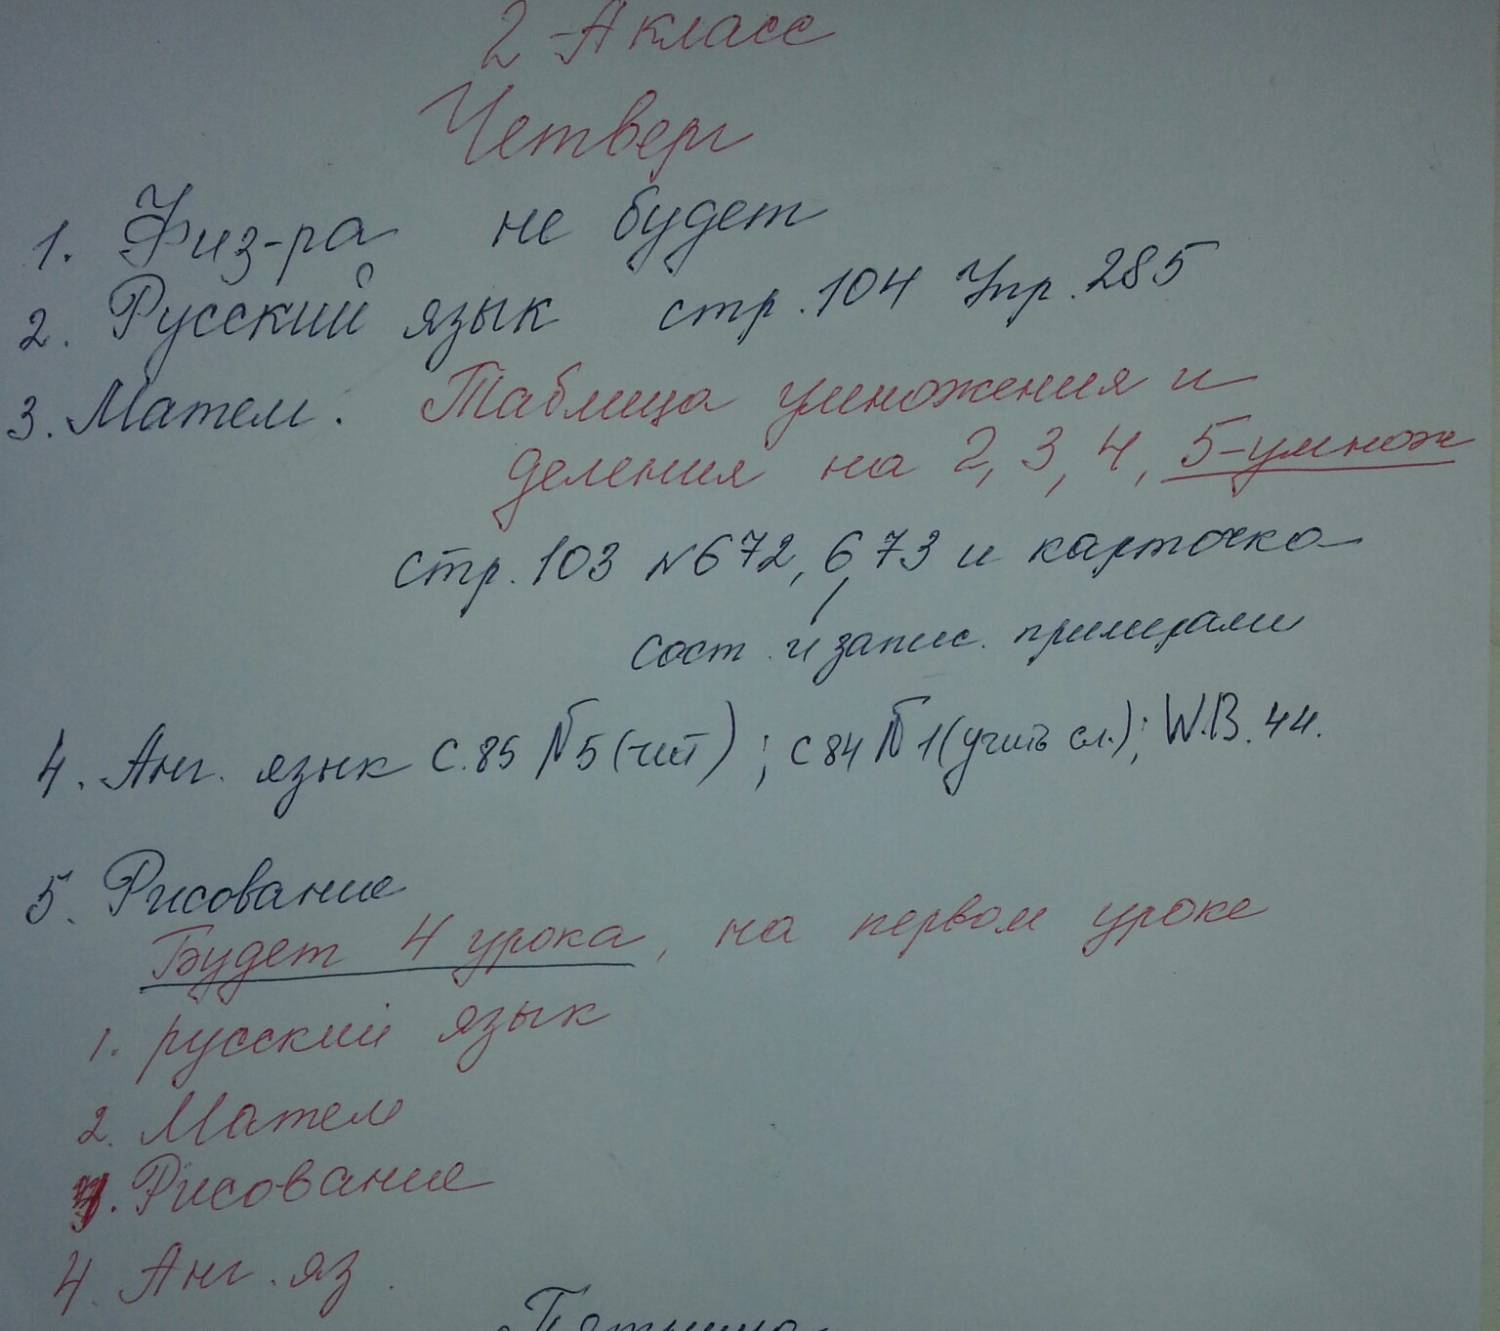 2-А класс
Четверг
1. Физ-ра не будет
2. Русский язык стр. 104 Упр. 285
3. Матем. Таблица умножения и
деления на 2, 3, 4, 5-умнож
стр. 103 №672, 673 и карточка
сост. и запис. примерами
4. Анг. язык с. 85 №5 (чит); с 84 №1 (учить сл.); W.B. 44.
5. Рисование
Будет 4 урока, на первом уроке
1. русский язык
2. Матем
3. Рисование
4. Анг. яз.
Пятница